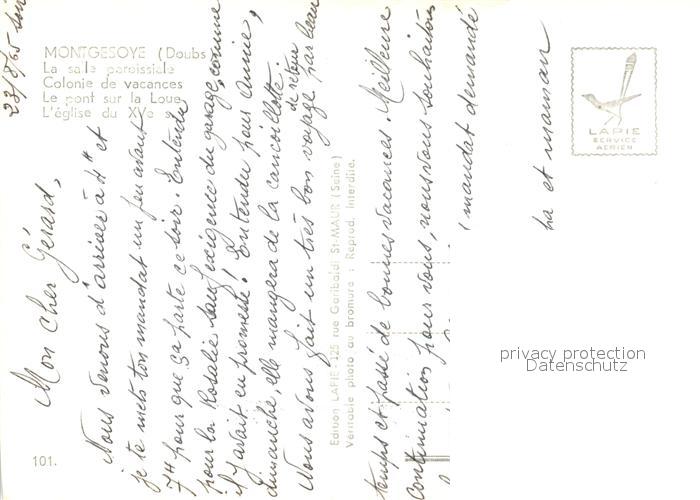 23/8/65 soir
MONTGESOYE (Doubs)
La salle paroissiale
Colonie de vacances
Le pont sur la Loue
L'église du XVe s.
Mon cher Gérard,
Nous venons d'arriver à 4H et
je te mets ton mandat un peu avant
7H pour que ça parte ce soir. Entendu
pour la Rosalie sauf exigence du garage, comme
il y avait eu promesse! Entendu pour Annie,
dimanche, elle mangera de la cancoillotte.
Nous avons fait un très bon voyage de retour par beau
temps et passé de bonnes vacances. Meilleure
continuation pour vous, nous vous souhaitons
(mandat demandé
pa et maman
Edition LAPIE - 125 rue Garibaldi St-MAUR (Seine)
Véritable photo au bromure : Reprod. Interdite.
LAPIE
SERVICE
AERIEN
privacy protection
Datenschutz
101.